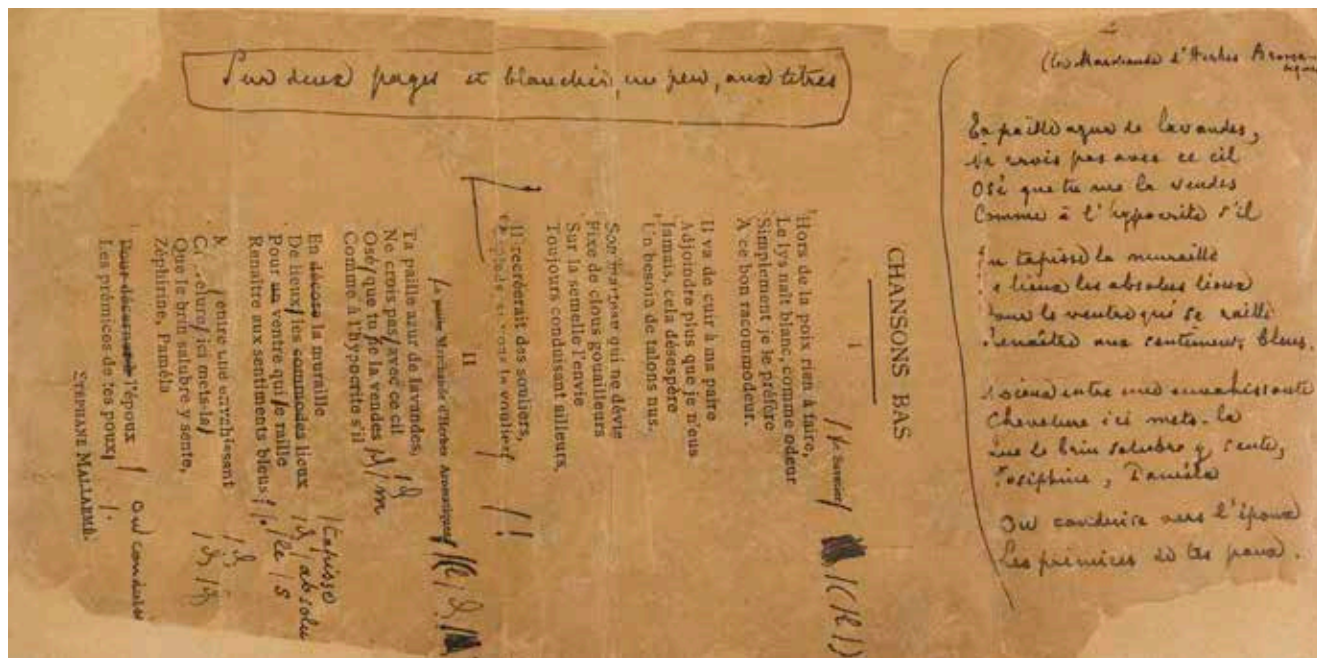 Sur deux pages et blanchir, un peu, aux titres
CHANSONS BAS
I
Le Savetier
Hors de la poix rien à faire,
Le lys naît blanc, comme odeur
Simplement je le préfère
A ce bon racommodeur.
Il va de cuir à ma paire
Adjoindre plus que je n'eus
Jamais, cela désespère
Un besoin de talons nus.
Son marteau qui ne dévie
Fixe de clous gouailleurs
Sur la semelle l'envie
Toujours conduisant ailleurs.
Il recréerait des souliers,
si vous le vouliez
II
La Marchande d'Herbes Aromatiques
Ta paille azur de lavandes,
Ne crois pas avec ce cil
Osé que tu me la vendes /m
Comme à l'hypocrite s'il
En la muraille /tapisse
De lieux les commodes lieux /absolu
Pour un ventre qui se raille /le /s
Renaître aux sentiments bleus !
entre une envahissant
ici mets-la
Que le brin salubre y sente,
Zéphirine, Paméla
l'époux / Ou conduire
Les prémices de tes poux
STÉPHANE MALLARMÉ.
(La Marchande d'Herbes Aromatiques
Ta paille azur de lavandes,
Ne crois pas avec ce cil
Osé que tu me la vendes
Comme à l'hypocrite s'il
En tapisse la muraille
De lieux les absolus lieux
Pour le ventre qui se raille
Renaître aux sentiments bleus.
Mieux entre une envahissante
Chevelure ici mets-la
Que le brin salubre y sente,
Zéphirine, Paméla
Ou conduire vers l'époux
Les prémices de tes poux.